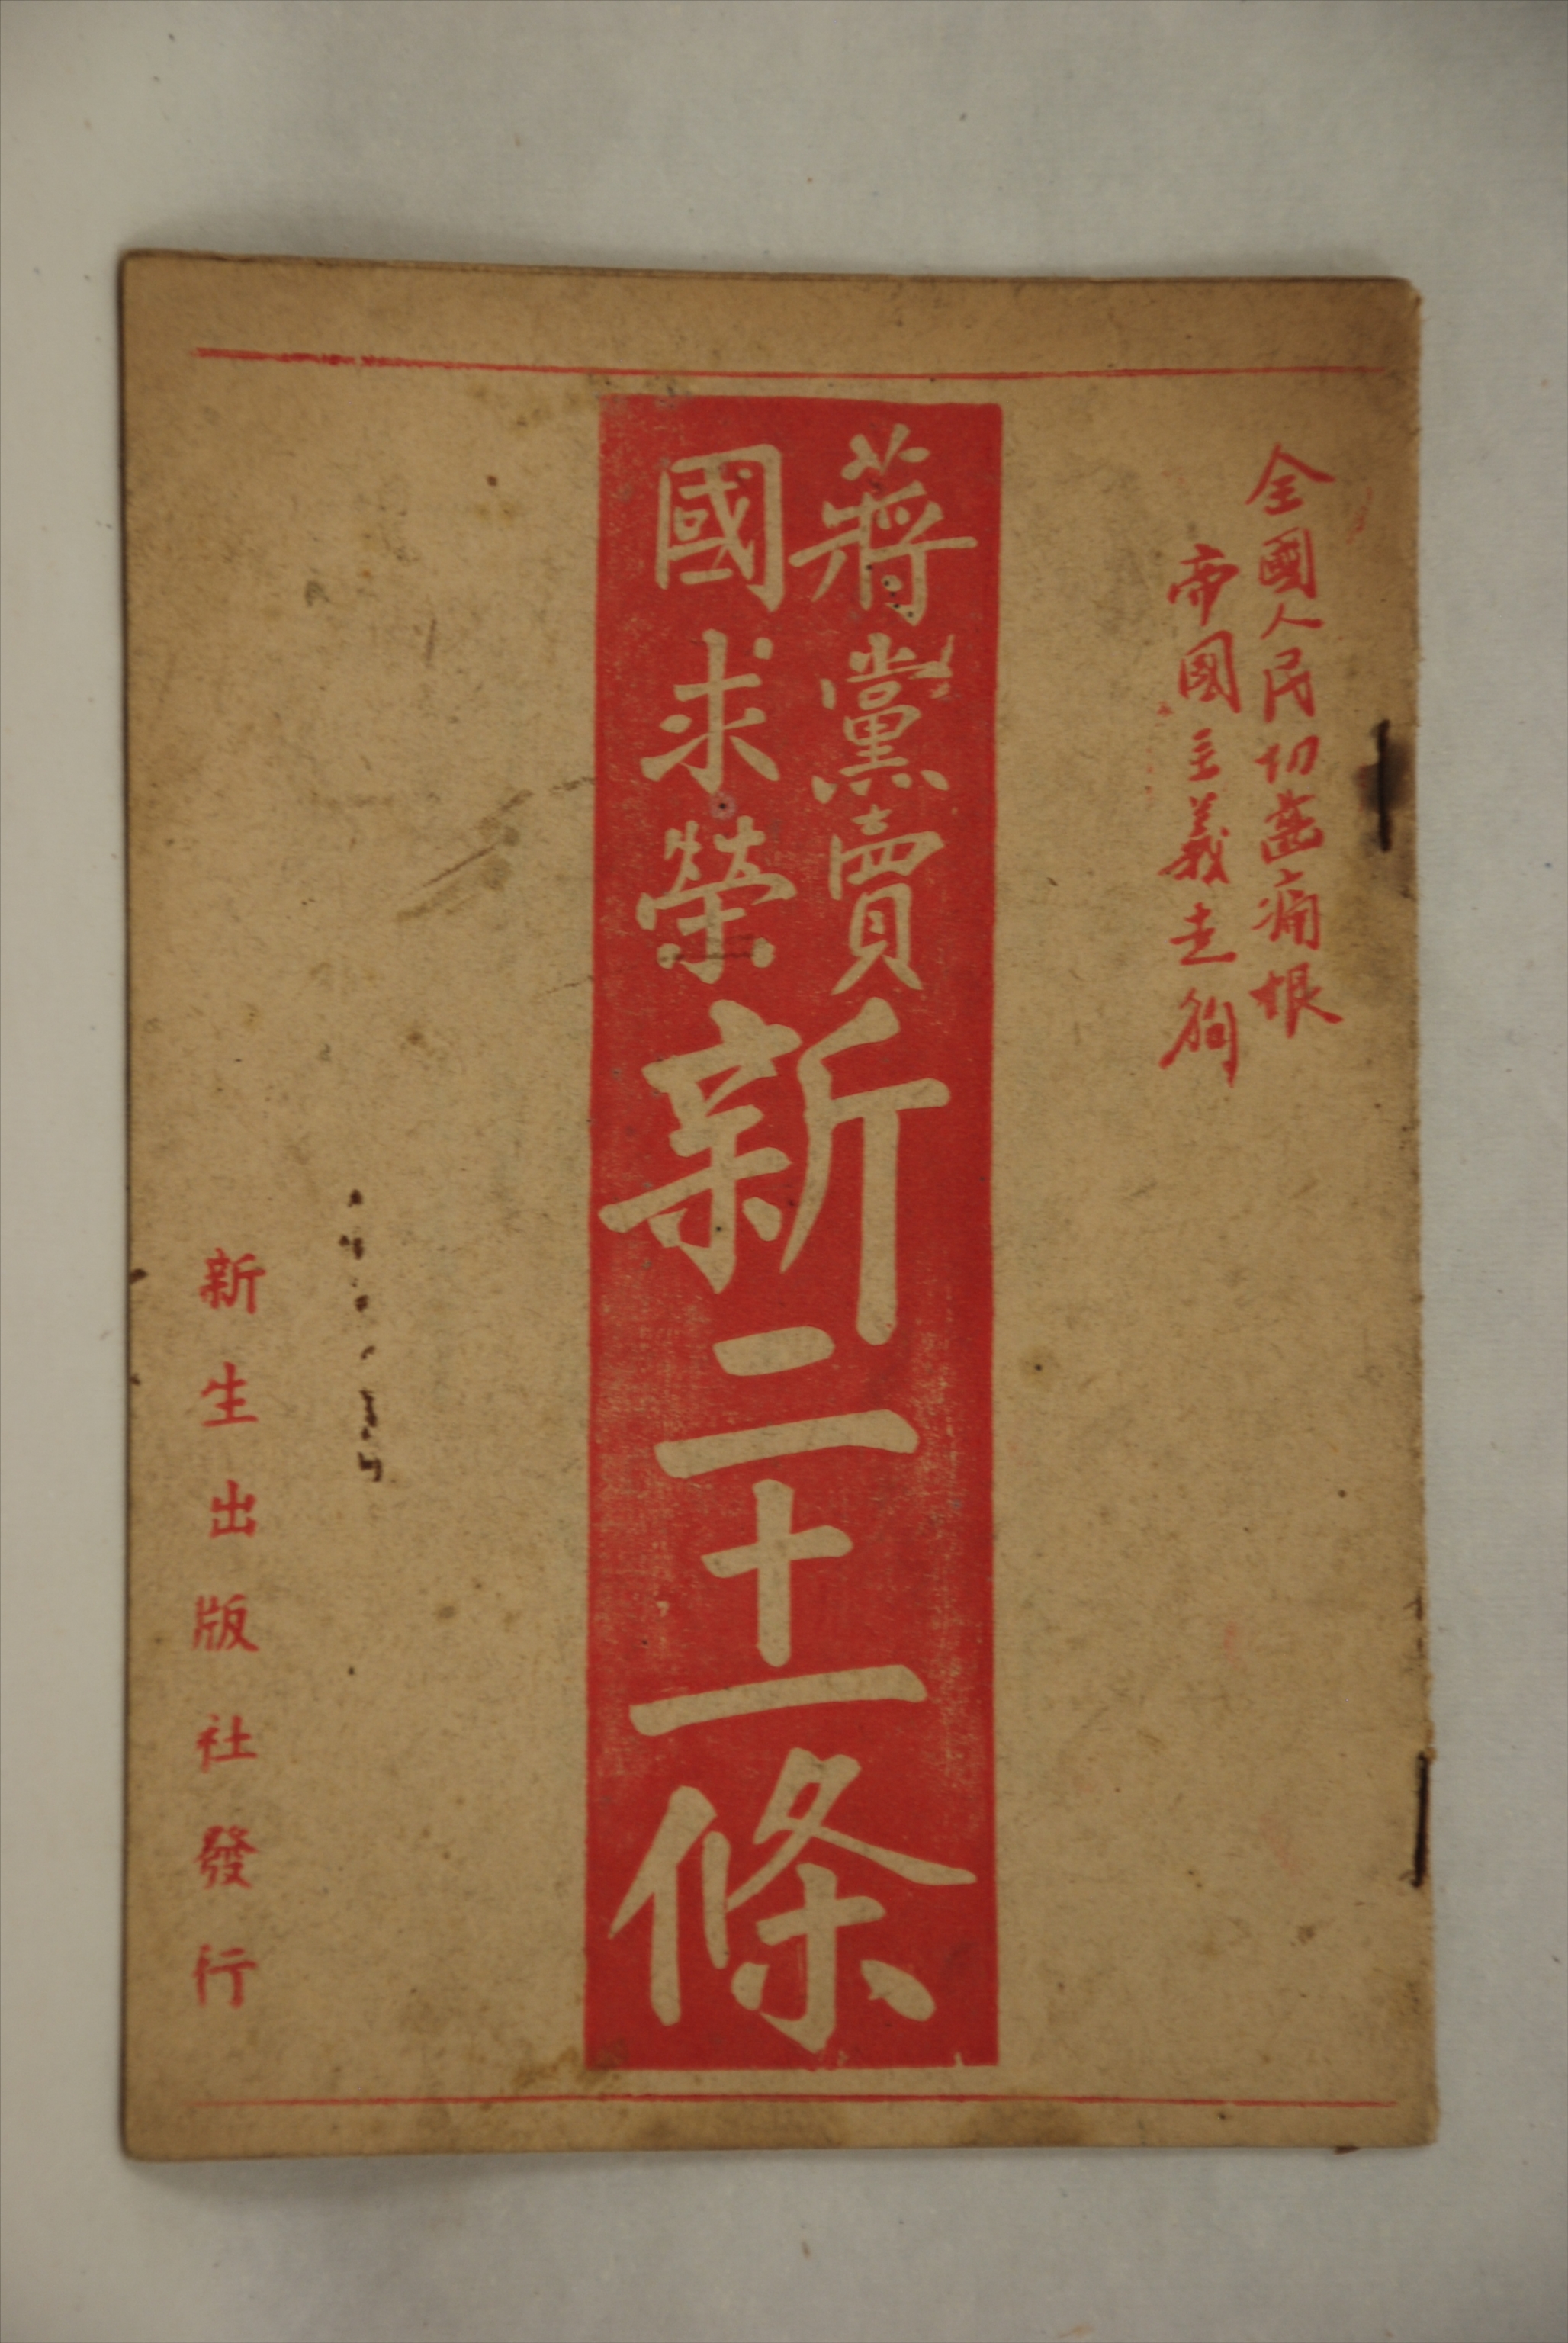 全國人民切齒痛恨
帝國主義走狗
蔣黨賣
國求榮
新二十一條
新生出版社發行